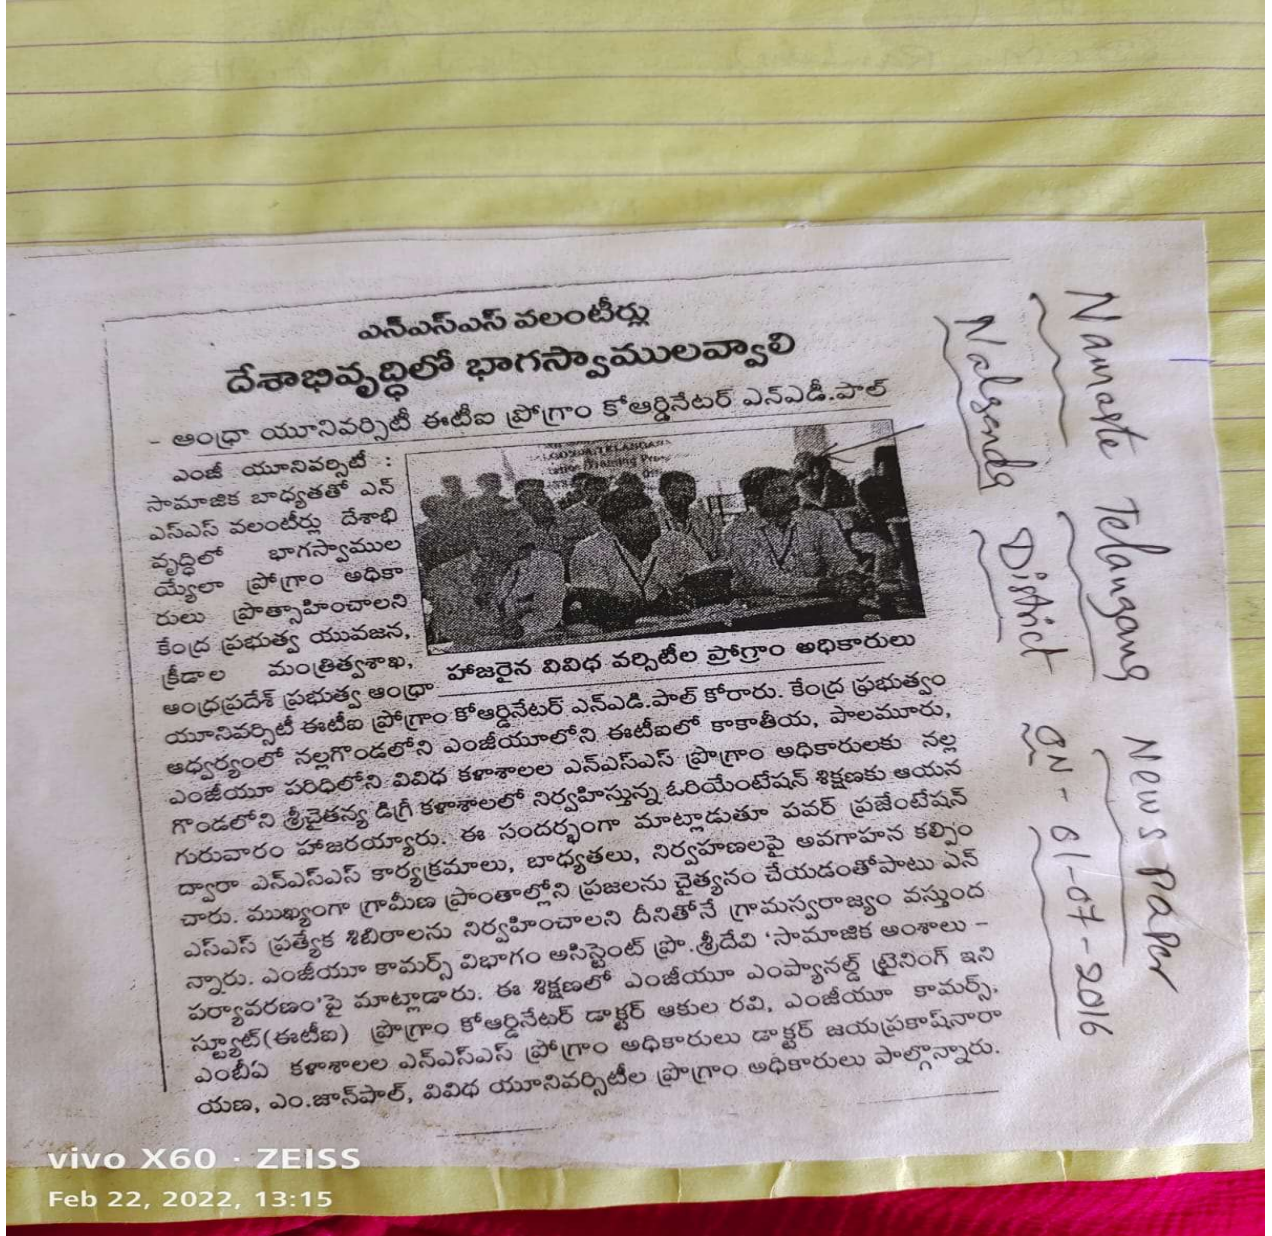 ఎన్ఎస్ఎస్ వలంటీర్లు
దేశాభివృద్ధిలో భాగస్వాములవ్వాలి
- ఆంధ్రా యూనివర్సిటీ ఈటీఐ ప్రోగ్రాం కోఆర్డినేటర్ ఎన్ఎడీ.పాల్
ఎంజీ యూనివర్సిటీ :
సామాజిక బాధ్యతతో ఎన్
ఎస్ఎస్ వలంటీర్లు దేశాభి
వృద్ధిలో భాగస్వాముల
య్యేలా ప్రోగ్రాం అధికా
రులు ప్రోత్సాహించాలని
కేంద్ర ప్రభుత్వ యువజన,
క్రీడాల మంత్రిత్వశాఖ,
ఆంధ్రప్రదేశ్ ప్రభుత్వ ఆంధ్రా
యూనివర్సిటీ ఈటీఐ ప్రోగ్రాం కోఆర్డినేటర్ ఎన్ఎడి.పాల్ కోరారు. కేంద్ర ప్రభుత్వం
ఆధ్వర్యంలో నల్లగొండలోని ఎంజీయూలోని ఈటీఐలో కాకాతీయ, పాలమూరు,
ఎంజీయూ పరిధిలోని వివిధ కళాశాలల ఎన్ఎస్ఎస్ ప్రొగ్రాం అధికారులకు నల్ల
గొండలోని శ్రీచైతన్య డిగ్రీ కళాశాలలో నిర్వహిస్తున్న ఓరియేంటేషన్ శిక్షణకు ఆయన
గురువారం హాజరయ్యారు. ఈ సందర్భంగా మాట్లాడుతూ పవర్ ప్రజేంటేషన్
ద్వారా ఎన్ఎస్ఎస్ కార్యక్రమాలు, బాధ్యతలు, నిర్వహణలపై అవగాహన కల్పిం
చారు. ముఖ్యంగా గ్రామీణ ప్రాంతాల్లోని ప్రజలను చైత్యనం చేయడంతోపాటు ఎన్
ఎస్ఎస్ ప్రత్యేక శిబిరాలను నిర్వహించాలని దీనితోనే గ్రామస్వరాజ్యం వస్తుంద
న్నారు. ఎంజీయూ కామర్స్ విభాగం అసిస్టెంట్ ప్రొ.శ్రీదేవి 'సామాజిక అంశాలు -
పర్యావరణం'పై మాట్లాడారు. ఈ శిక్షణలో ఎంజీయూ ఎంప్యానల్డ్ ట్రైనింగ్ ఇని
స్ట్యూట్(ఈటీఐ) ప్రొగ్రాం కోఆర్డినేటర్ డాక్టర్ ఆకుల రవి, ఎంజీయూ కామర్స్,
ఎంబీఏ కళాశాలల ఎన్ఎస్ఎస్ ప్రోగ్రాం అధికారులు డాక్టర్ జయప్రకాష్‌నారా
యణ, ఎం.జాన్‌పాల్, వివిధ యూనివర్సిటీల ప్రొగ్రాం అధికారులు పాల్గొన్నారు.
హాజరైన వివిధ వర్సిటీల ప్రోగ్రాం అధికారులు
Namaste Telangana News Paper
Nalgonda District on - 01-07-2016
vivo X60 · ZEISS
Feb 22, 2022, 13:15